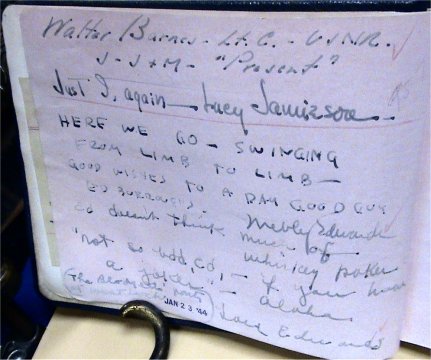 Walter Burnes - Lt. C. - USNR.
J - J + M - "Present"
Just I, again — Lucy Jamieson
HERE WE GO - SWINGING
FROM LIMB TO LIMB -
GOOD WISHES TO A DAM GOOD GUY
ED BURROUGHS. Webley Edwards
Ed doesn't think much of whiskey poker
"not so bad, Ed, - if you have
a joker - aloha
JAN 23 '44 Edwards